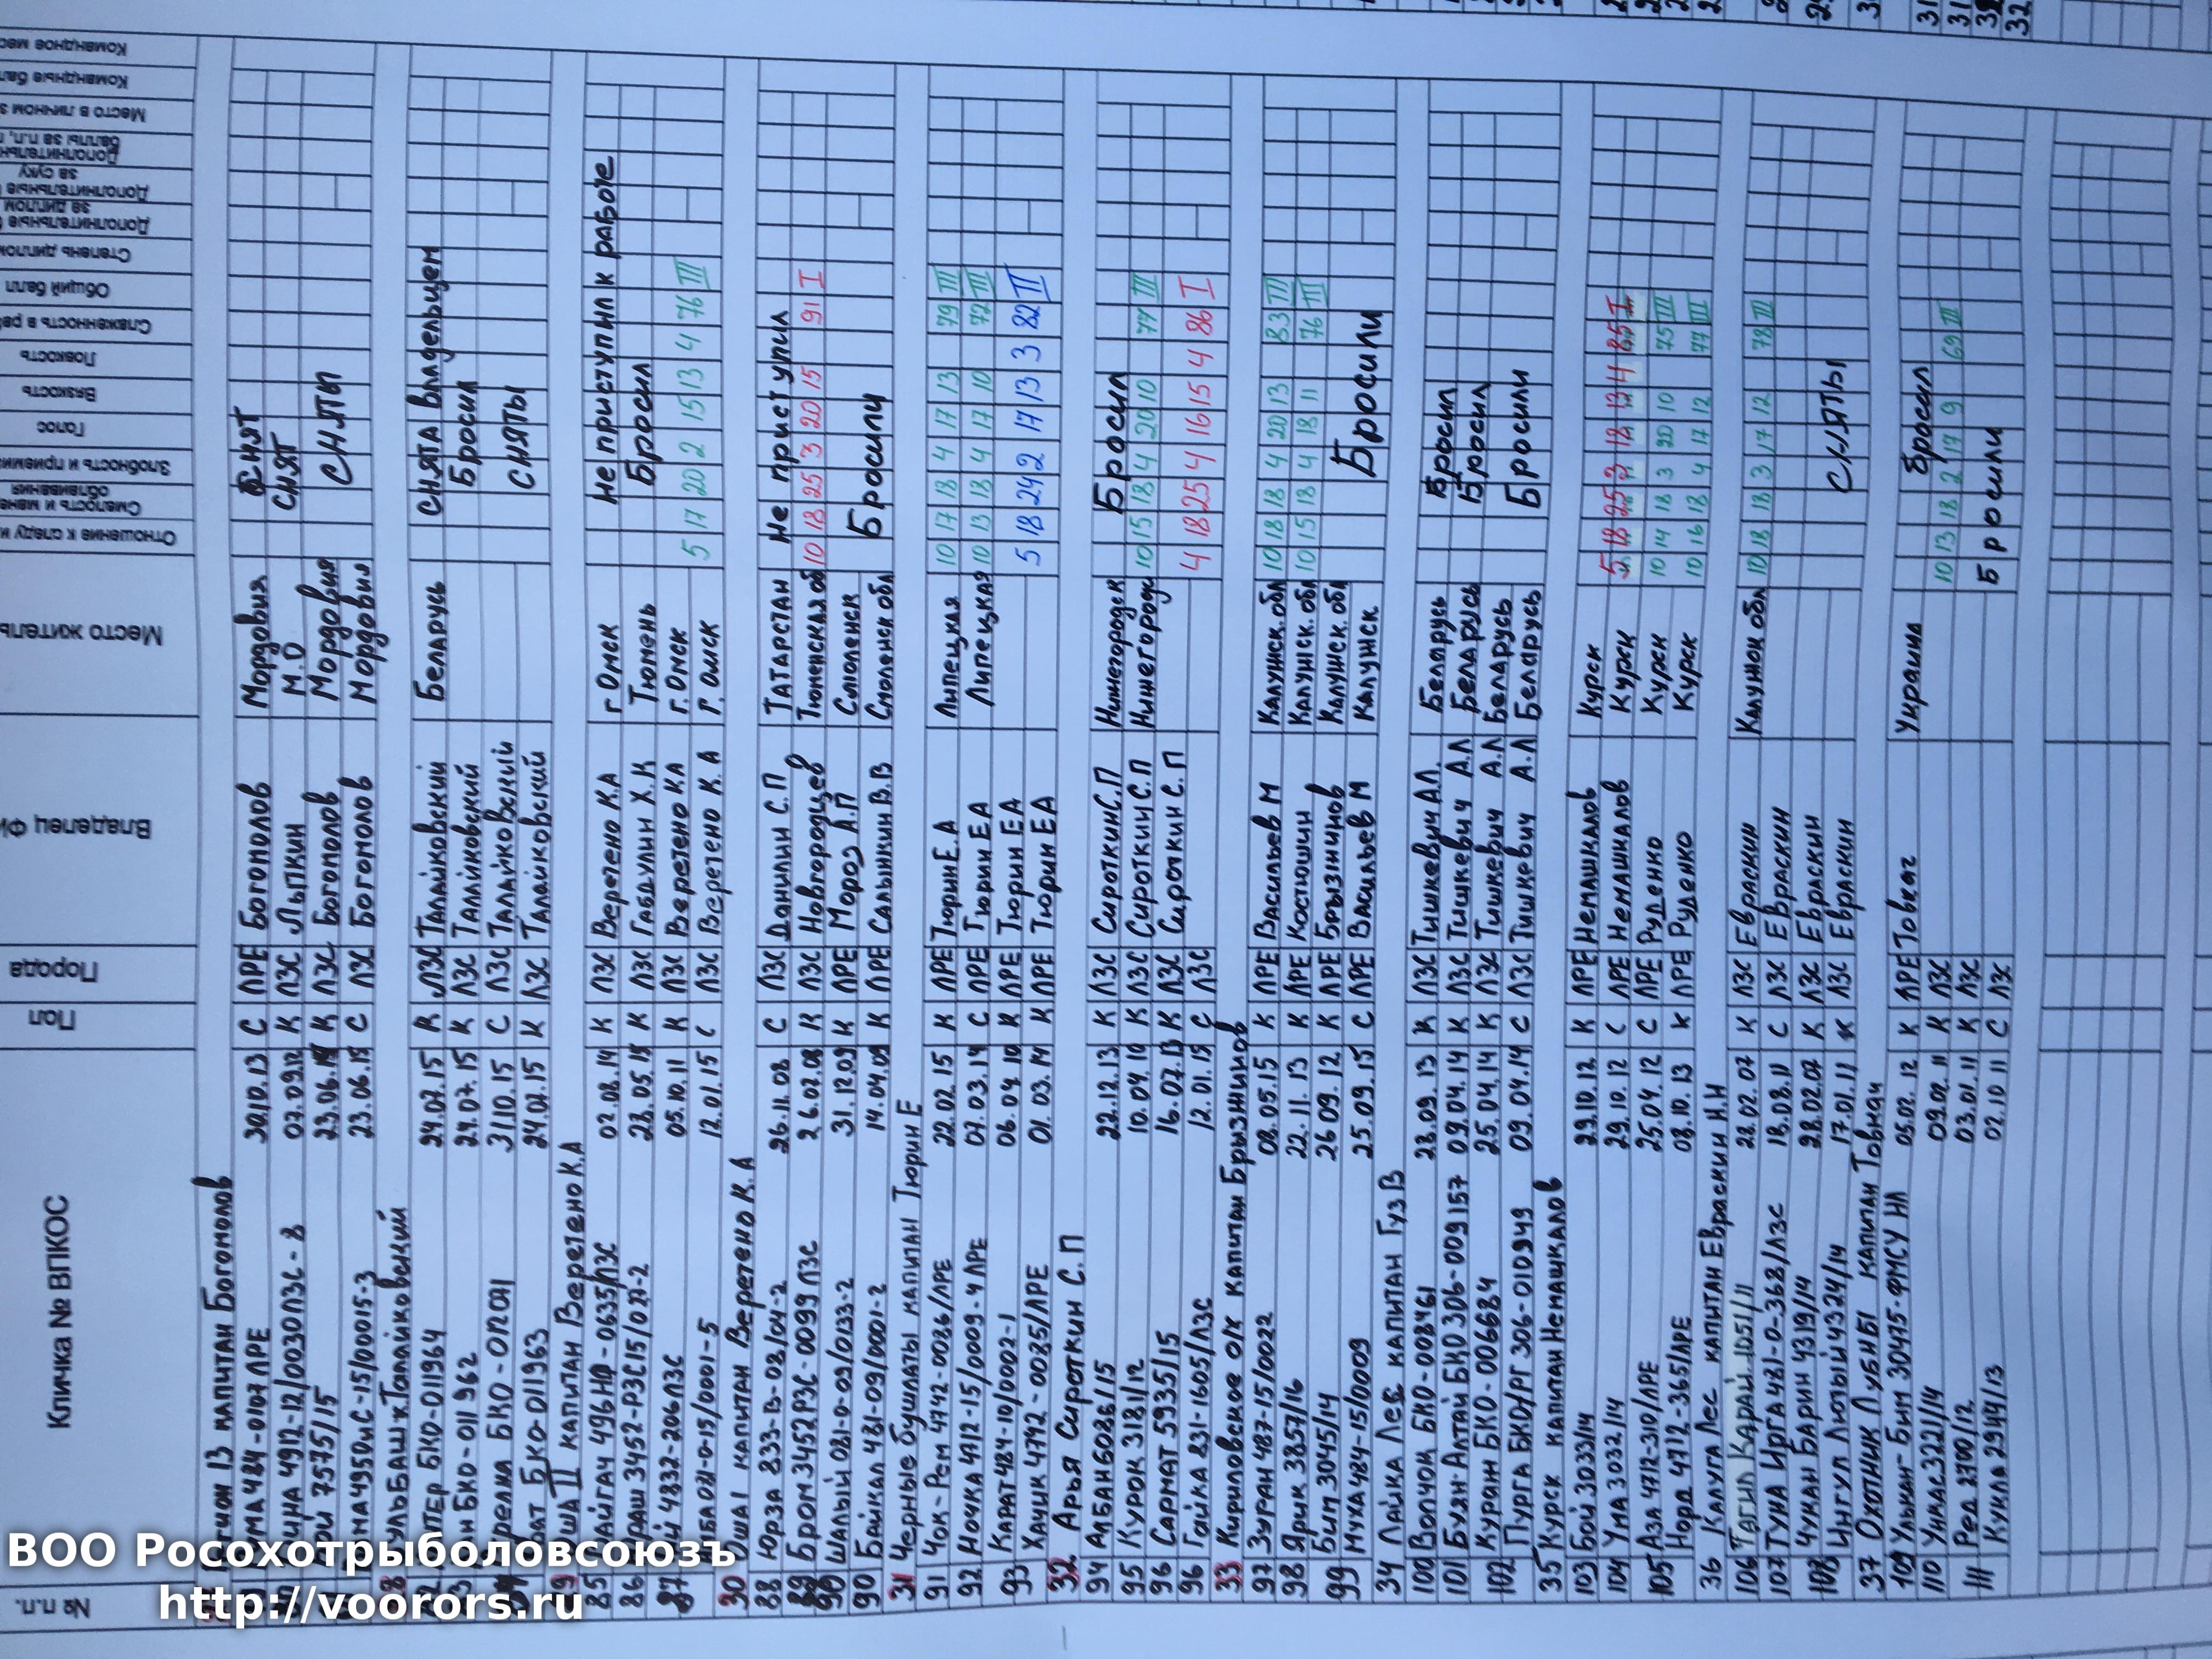 № п.п.
Кличка № ВПКОС
Пол
Порода
Владелец
Место
Отношение к следу и
Смелость и
Злобность и
Голос
Вязкость
Ловкость
Слаженность в
Общий балл
Степень
Дополнительные за диплом
Дополнительные за суку
Дополнительн баллы за п.п.
Место в личном
Командные
Командное
13 капитан Богомолов
484-0107 ЛРЕ 30.10.13 С ЛРЕ Богомолов Мордовия снят
4912-12/0030ЛЗС-8 К ЛЗС Лыпкин М.О снят
7575/15 К ЛЗС Богомолов Мордовия сняты
15/00015-3 23.06.15 С ЛЗС Богомолов Мордовия
капитан Талайковский
БКО-011964 24.07.15 К ЛЗС Талайковский Беларусь снята владельцем
БКО-011962 24.07.15 К ЛЗС Талайковский Бросил
БКО- 31.10.15 С ЛЗС Талайковский сняты
БКО-011963 24.07.15 К ЛЗС Талайковский
Юша II капитан Веретено К.А
85 Байгач 496НФ-0635/ЛЗС 02.08.14 К ЛЗС Веретено К.А г Омск не приступил к работе
86 3452-РЗС15/ -2 28.05.15 К ЛЗС Габдулин Х.К Тюмень Бросил
87 4832-206ЛЗС 05.10.11 К ЛЗС Веретено К.А г. Омск 5 17 20 2 15 13 4 76 III
081-0-15/0001-5 12.01.15 С ЛЗС Веретено К.А г. Омск
30 Юша I капитан Веретено К.А
88 Юрза 833-В-08/04-2 26.11.08 С ЛЗС Данилин С.П Татарстан Не приступил
89 Бром 3452РЗС-0099 ЛЗС 26.02.08 К ЛЗС Новгородцев Тюменская об 10 18 25 3 20 15 91 I
90 Шалый 081-0-09/0133-2 31.12.09 К ЛРЕ Мороз А.П Смоленск Бросили
90 Байкал 481-09/0001-2 14.04.09 К ЛРЕ Салынкин В.В Смоленск обл
31 Черные бушлаты капитан Тюрин Е
91 Чок-Рем 4742-0086/ЛРЕ 22.02.15 К ЛРЕ Тюрин Е.А Липецкая 10 17 18 4 17 13 79 III
92 Ночка 4712-15/0009-4 ЛРЕ 07.03.14 С ЛРЕ Тюрин Е А Липецкая 10 13 18 4 17 10 72 III
93 Карат 484-10/0002-1 06.04.10 К ЛРЕ Тюрин Е А 5 18 24 2 17 13 3 82 II
Хауик 4742-0085/ЛРЕ 01.03.14 К ЛРЕ Тюрин ЕА
32 Арья Сироткин С.П
94 Албан 6086/15 22.12.13 К ЛЗС Сироткин С.П Нижегородск Бросил
95 Курок 3181/12 10.04.10 К ЛЗС Сироткин С.П Нижегородск 10 15 18 4 20 10 77 III
96 Сармат 5935/15 16.07.13 К ЛЗС Сироткин С.П 4 18 25 4 16 15 4 86 I
96 Гайка 831-1605/ЛЗС 12.01.15 С ЛЗС
33 Кириловское о/х капитан Брызжников
97 Зуран 487-15/0022 08.05.15 К ЛРЕ Васильев М Калужск. обл 10 18 18 4 20 13 83 III
98 Ярык 3857/16 22.11.13 К ЛРЕ Костюшин Калужск. обл 10 15 18 4 18 11 76 III
99 Бым 3045/14 26 09.12 К ЛРЕ Брызжников Калужск. обл Бросили
Муха 484-15/0009 25.09.15 С ЛРЕ Васильев М Калужск
34 Лайка Лев капитан Гуз В
100 Волчок БКО-008461 28.09.13 К ЛЗС Тишкевич А.Л. Беларусь Бросил
101 Буян-Алтай БКО 306-009157 09.04.14 К ЛЗС Тишкевич А.Л Беларусь Бросил
102 Куран БКО-006684 25.04.14 К ЛЗС Тишкевич А.Л Беларусь Бросили
Пурга БКО/РГ 306-010949 09.04.14 С ЛЗС Тишкевич А.Л Беларусь
35 Курск капитан Немашкалов
103 Бой 3033/14 29.10.12 К ЛРЕ Немашкалов Курск
104 Ума 3032/14 29.10.12 С ЛРЕ Немашкалов Курск 5 18 25 3 18 12 4 85 I
105 Аза 4712-310/ЛРЕ 25.04.12 С ЛРЕ Руденко Курск 10 14 18 3 20 10 75 III
Норд 4712-365/ЛРЕ 08.10.13 К ЛРЕ Руденко Курск 10 16 18 4 17 12 77 III
36 Калуга Лес капитан Евраскин Н.Н
106 Тагил Карай 1051/11 28.02.07 К ЛЗС Евраскин Калужск обл 10 18 18 3 17 12 78 III
107 Туна Ирга 481-0-368/ЛЗС 18.08.11 С ЛЗС Евраскин
108 Чулкан Барин 4319/14 28.02.07 К ЛЗС Евраскин сняты
Ингул Лютый 4324/14 17.01.11 К ЛЗС Евраскин
37 Охотник Лубны капитан Товкач
109 Улькан-Бым 30475-ФМСУ НЛ 05.02.12 К ЛРЕ Товкач Украина бросил
110 Ункас 3221/14 09.02.11 К ЛЗС 10 13 18 2 17 9 69 III
111 Ред 2700/12 03.01.11 К ЛЗС Бросили
Кукла 2944/13 02.10 11 С ЛЗС
ВОО Росохотрыболовсоюзъ
http://voorors.ru